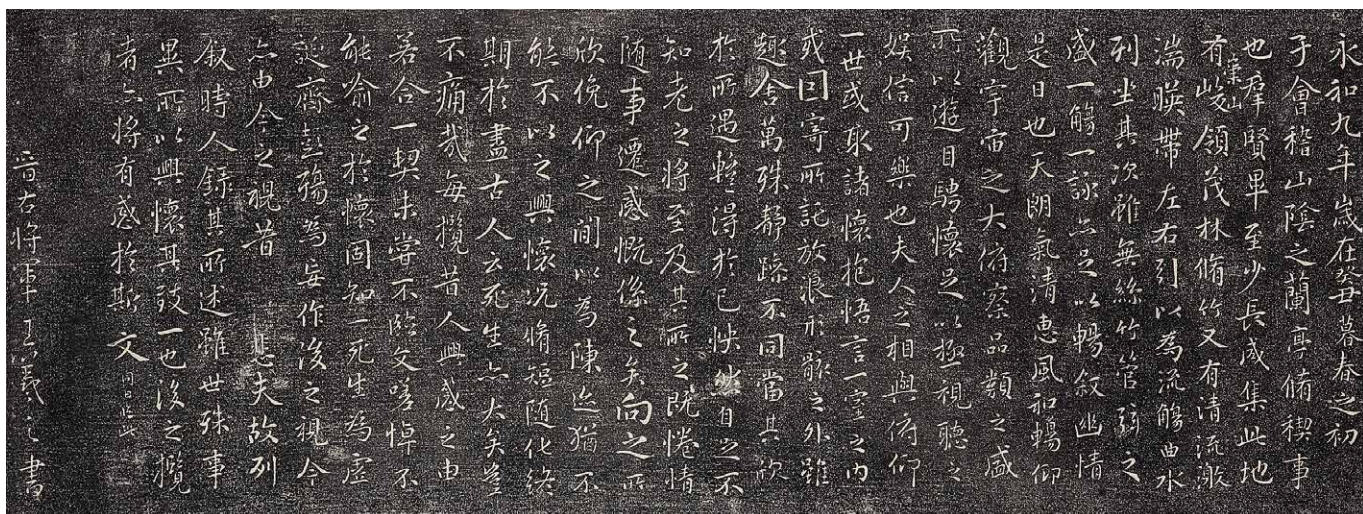 永和九年歲在癸丑暮春之初
于會稽山陰之蘭亭脩稧事
也羣賢畢至少長咸集此地
有崇山峻領茂林脩竹又有清流激
湍暎帶左右引以為流觴曲水
列坐其次雖無絲竹管弦之
盛一觴一詠亦足以暢叙幽情
是日也天朗氣清惠風和暢仰
觀宇宙之大俯察品類之盛
所以遊目騁懷足以極視聽之
娛信可樂也夫人之相與俯仰
一世或取諸懷抱悟言一室之內
或因寄所託放浪形骸之外雖
趣舍萬殊靜躁不同當其欣
於所遇暫得於己怏然自足不
知老之將至及其所之既惓情
随事遷感慨係之矣向之所
欣俛仰之閒以為陳迹猶不
能不以之興懷況脩短随化終
期於盡古人云死生亦大矣豈
不痛哉每攬昔人興感之由
若合一契未嘗不臨文嗟悼不
能喻之於懷固知一死生為虛
誕齊彭殤為妄作後之視今
亦由今之視昔 悲夫故列
叙時人錄其所述雖世殊事
異所以興懷其致一也後之攬
者亦將有感於斯文
晉右將軍王羲之書